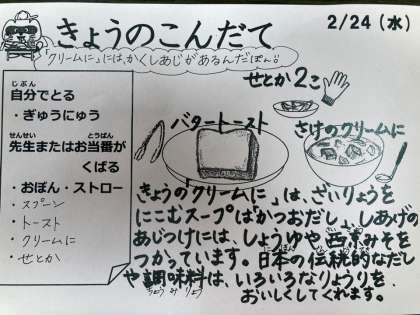 きょうのこんだて
2/24(水)
「クリームに」には、かくしあじがあるんだぽん!
じぶん
自分でとる
・ぎゅうにゅう
せんせい とうばん
先生またはお当番が
くばる
・おぼん・ストロー
・スプーン
・トースト
・クリームに
・せとか
せとか2こ
バタートースト
さけのクリームに
きょうの「クリームに」は、ざいりょうを
にこむスープは「かつおだし」、しあげの
あじつけには、しょうゆや西京みそを
つかっています。日本の伝統的なだし
や調味料は、いろいろなりょうりを
ちょうみりょう
おいしくしてくれます。